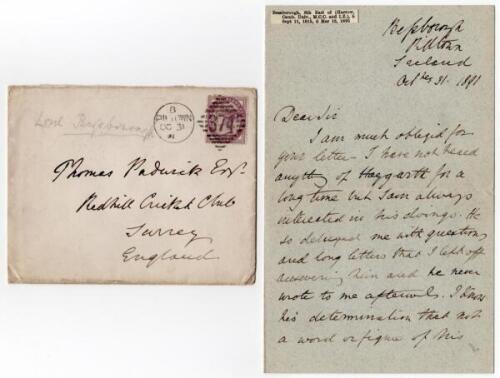 Lord Bessborough
B
PILTOWN
OC 31
91
374
Thomas Padwick Esqr.
Redhill Cricket Club
Surrey
England
Bessborough, 6th Earl of (Harrow,
Camb. Univ., M.C.C. and I.Z.), b
Sept 11, 1815, d Mar 12, 1895
Bessborough
Piltown
Ireland
Octber 31. 1891
Dear Sir
I am much obliged for
your letter - I have not heard
anything of Haygarth for a
long time but I am always
interested in his doings. He
so deluged me with questions
and long letters that I left off
answering him and he never
wrote to me afterwds. I know
his determination that not
a word or figure of his